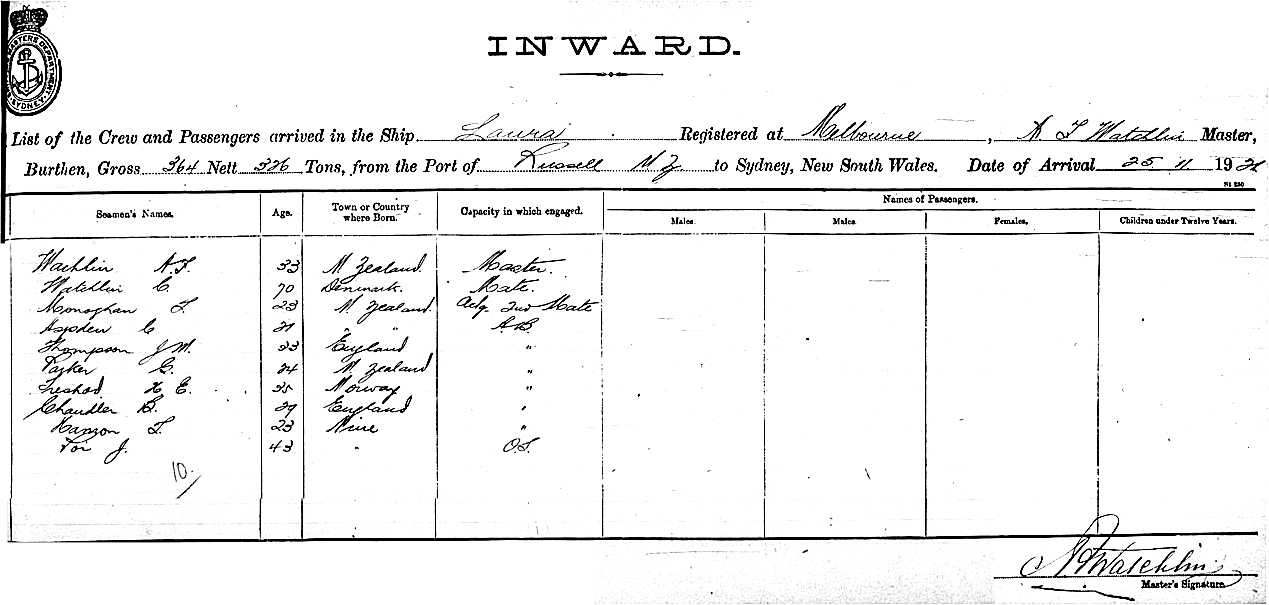 MASTERS DEPARTMENT SYDNEY
INWARD.
List of the Crew and Passengers arrived in the Ship Laura Registered at Melbourne, A F Watchlin Master,
Burthen, Gross 364 Nett 326 Tons, from the Port of Russell N Z to Sydney, New South Wales. Date of Arrival 25 11 1921
Seamen's Names. Age. Town or Country where Born. Capacity in which engaged. Names of Passengers.
Males. Males. Females. Children under Twelve Years.
Wachlin A.F. 33 N Zealand. Master.
Watchlin C. 70 Denmark. Mate.
Monaghan F. 23 N. Zealand. Actg. 2nd Mate
Aspden C 21 " " A.B.
Thompson J M. 33 England "
Parker G. 24 N. Zealand "
H E. 35 Norway "
Chandler B. 29 England "
Hanson F. 23 Niue "
Toi J. 43 " O.S.
10.
A F Watchlin
Master's Signature.